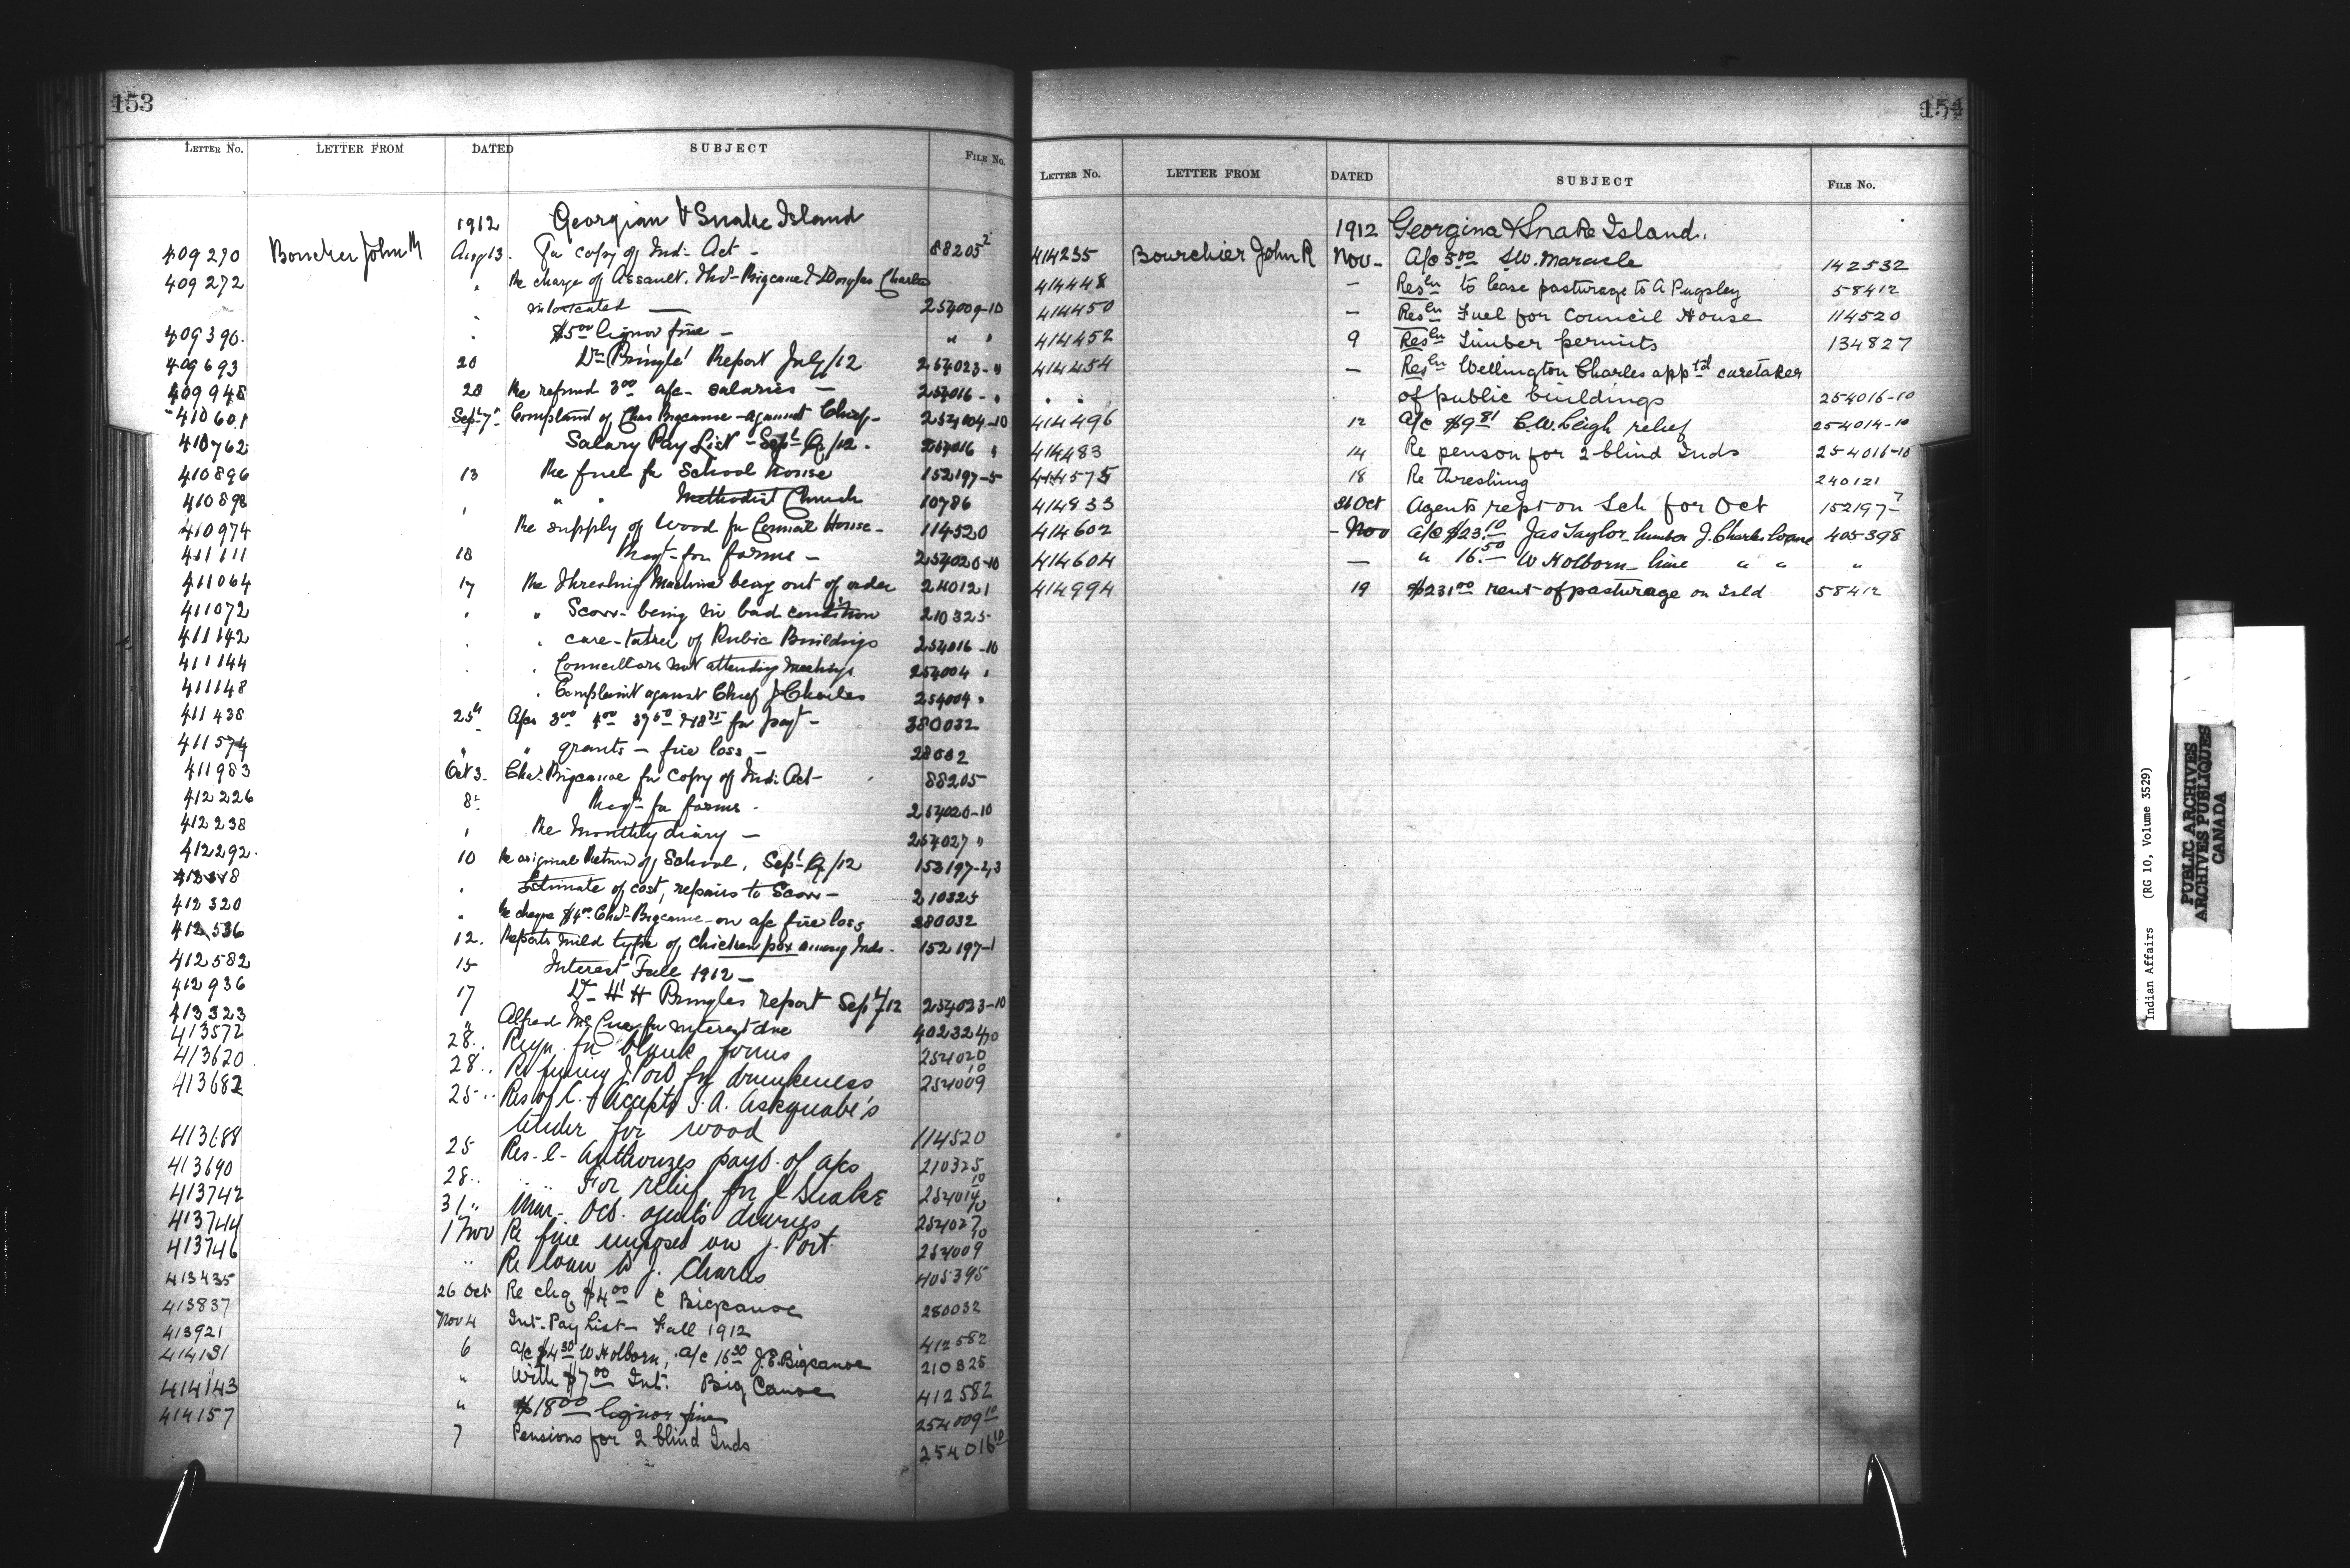 153
LETTER No. LETTER FROM DATED SUBJECT FILE No.
1912 Georgian & Snake Island
409270 Boucher John R Aug 13. For copy of Ind. Act - 88205²
409272 " Re charge of Assault. Thos. Bigcanoe & Douglas Charles
" intoxicated — 254009-10
409390. " $5⁰⁰ liquor fine - " "
409693 20 Dr Pringle' Report July/12 254023- "
409948 28 Re refund 3⁰⁰ a/c- salaries — 254016- "
410601 Sept 7" Complaint of Chas Bigcanoe - against Chief- 254004-10
410762 Salary Pay List - Sept Q/12. 254016 "
410896 13 Re fuel for School House 152197-5
410898 " " " Methodist Church 10786
410974 Re supply of Wood for Council House- 114520
411111 18 Reqt- for forms — 254020-10
411064 17 Re Threshing Machine being out of order 240121
411072 " " Scow- being in bad condition 210325-
411142 " " care-taker of Public Buildings 254016-10
411144 " " Councillors not attending meetings 254004 "
411148 " Complaint against Chief J Charles 254004 "
411438 25th A/cs 3⁰⁰ 4⁰⁰ 37⁵⁰ & 18⁷⁵ for payt- 280032
411574 " " grants — fire loss — 28032
411983 Oct 3- Chas. Bigcanoe for copy of Ind. Act- 88205
412226 8- Reqt- for forms - 254020-10
412238 " Re Monthly diary — 254027 "
412292. 10 Re original Return of School, Sept Q/12 153197-2,3
" Estimate of cost, repairs to Scow — 210325
412320 " Re cheque $4⁰⁰ Chas. Bigcanoe - on a/c fire loss 280032
412536 12. Reports mild type of chicken pox among Inds- 152197-1
412582 15 Interest Fall 1912 —
412936 17 Dr- H H Pringles report Sept/12 254023-10
413323 " Alfred McCue for interest due 402324
413572 28.. Reqn. for blank forms 254020 10
413620 28.. Re fining J. Port for drunkeness 254009 10
413682 25.. Res of C. - Accepts J. A. Askquabe's
tender for wood 114520
413688 25 Res-C- Authorizes payt. of a/cs 210325
413690 28.. " " For relief for J Snake 254014 10
413742 31" Mar- Oct. agents diaries 254027 10
413744 1 Nov Re fine imposed on J. Port. 254009 10
413746 " Re loan to J. Charles 405395
413435 26 Oct Re chq $4⁰⁰ C Bigcanoe 280032
413837 Nov 4 Int. Pay List — Fall 1912 412582
413921 6 a/c $4⁵⁰ W Holborn, a/c 16⁵⁰ J.E. Bigcanoe 210325
414131 " With $7⁰⁰ Int. Big Canoe 412582
414143 " $18⁰⁰ liquor fines 254009 10
414157 7 Pensions for 2 blind Inds 254016 10
154
LETTER No. LETTER FROM DATED SUBJECT FILE No.
1912 Georgina & Snake Island.
414235 Bourchier John R Nov- A/c 5⁰⁰ S.W. Maracle 142532
414448 — Resln to lease pasturage to A Pugsley 58412
414450 — Resln Fuel for Council House 114520
414452 9 Resln Timber permits 134827
414454 — Resln Wellington Charles apptd caretaker
" " of public buildings 254016-10
414496 12 a/c $9⁸¹ C.W. Cligh relief 254014-10
414483 14 Re penson for 2 blind Inds 254016-10
414575 18 Re threshing 240121
414833 31 Oct Agents rept on Sch for Oct 152197-7
414602 - Nov a/c $23¹⁰ Jas Taylor lumber J. Charles loan 405398
414604 — " 16⁵⁰ W Holborn- lime " " "
414994 19 $231⁰⁰ rent of pasturage on Isld 58412
Indian Affairs (RG 10, Volume 3529)
PUBLIC ARCHIVES
ARCHIVES PUBLIQUES
CANADA